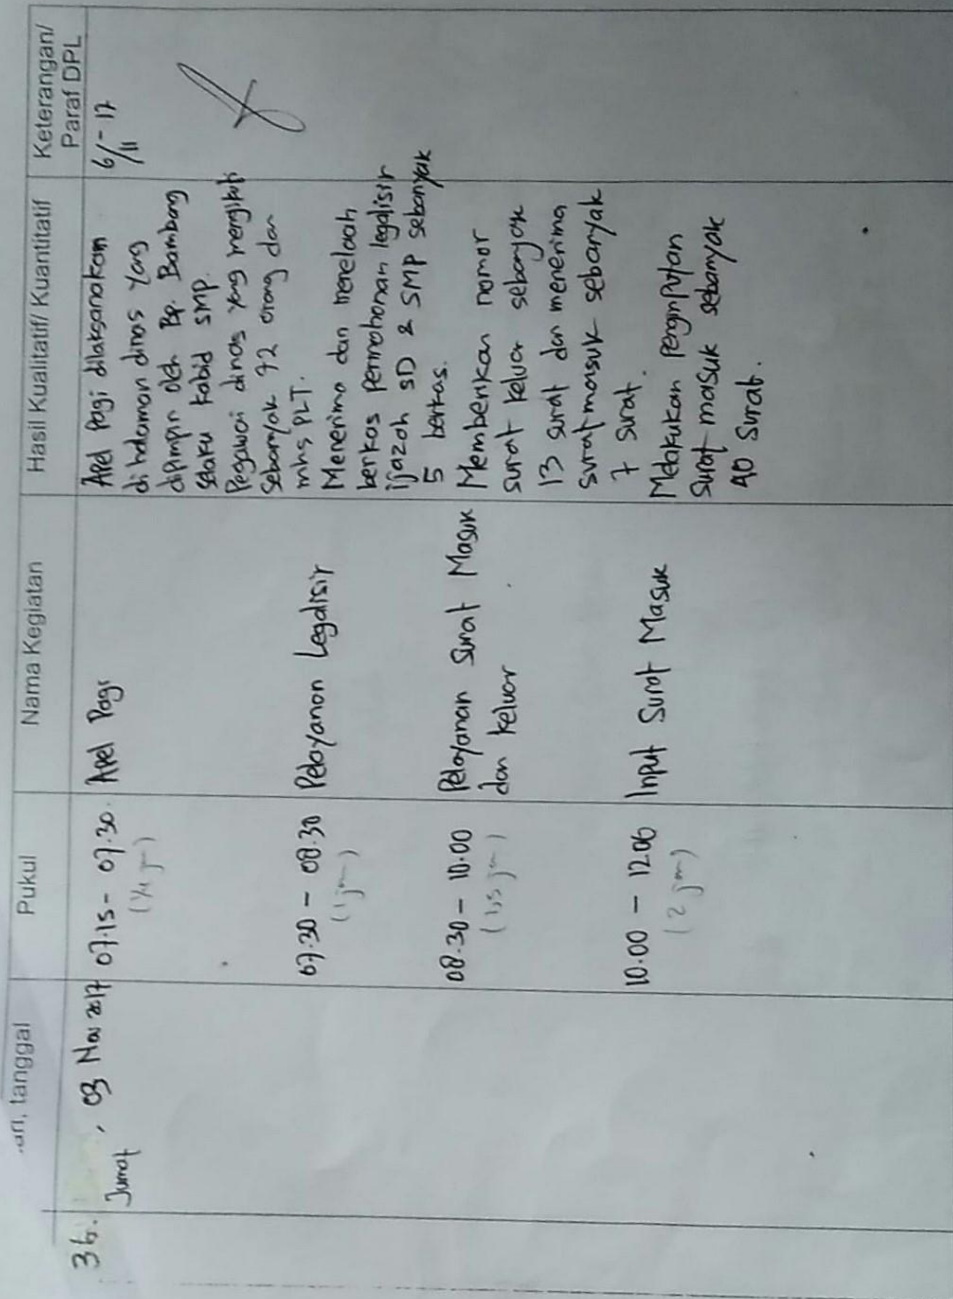 ari, tanggal
Pukul
Nama Kegiatan
Hasil Kualitatif/ Kuantitatif
Keterangan/
Paraf DPL
36.
Jumat, 03 Nov 2017
07.15 - 07.30.
(1/4 jam)
Apel Pagi
Apel Pagi dilaksanakan
di halaman dinas yang
dipimpin oleh Bp. Bambang
selaku kabid SMP.
Pegawai dinas yang mengikuti
sebanyak 72 orang dan
mhs PLT.
6/11 - 17
07.30 - 08.30
(1 jam)
Pelayanan Legalisir
Menerima dan menelaah
berkas permohonan legalisir
ijazah SD & SMP sebanyak
5 berkas.
08.30 - 10.00
(1,5 jam)
Pelayanan Surat Masuk
dan Keluar
Memberikan nomor
surat keluar sebanyak
13 surat dan menerima
surat masuk sebanyak
7 surat.
10.00 - 12.00
(2 jam)
Input Surat Masuk
Melakukan penginputan
surat masuk sebanyak
40 surat.